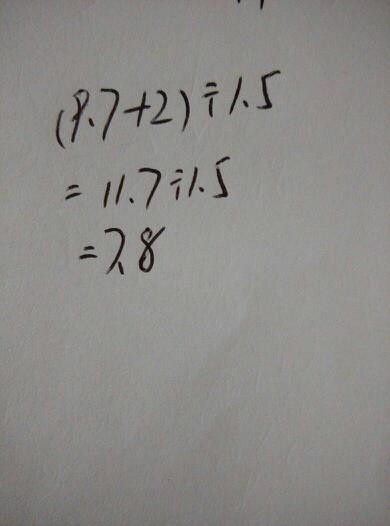 (9.7+2)÷1.5
=11.7÷1.5
=7.8